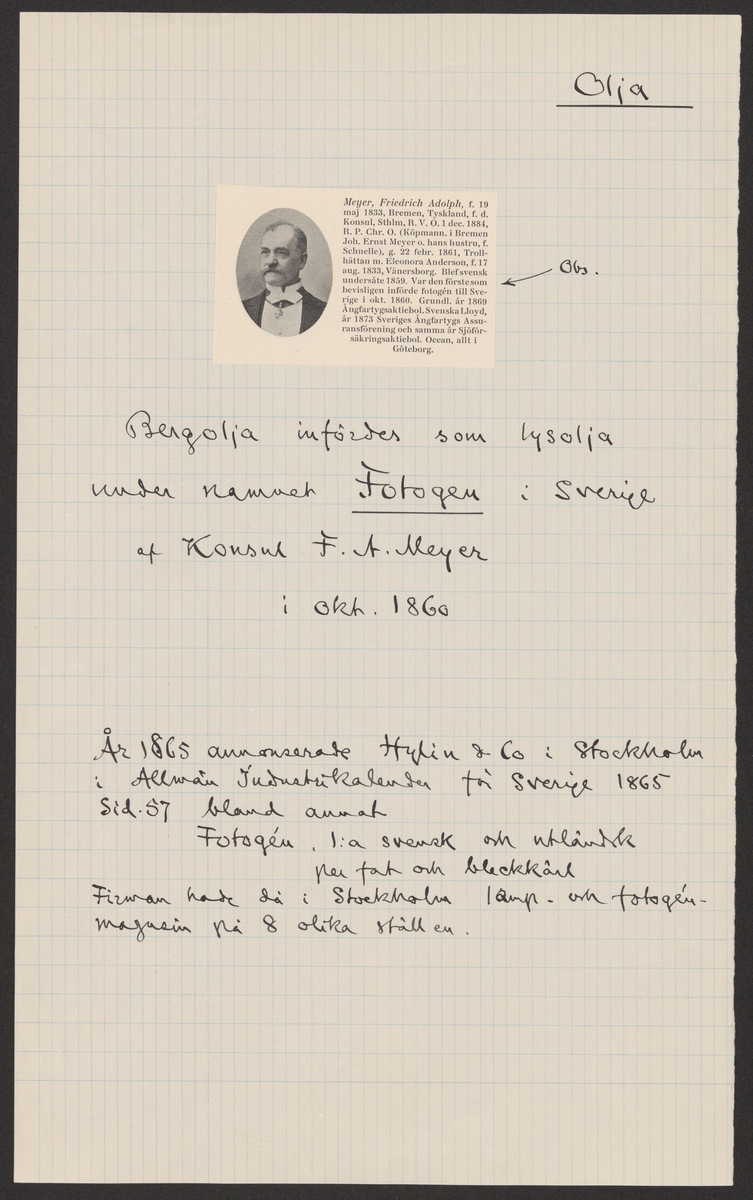 Olja
Meyer, Friedrich Adolph, f. 19
maj 1833, Bremen, Tyskland, f. d.
Konsul, Sthlm, R. V. O. 1 dec. 1884,
R. P. Chr. O. (Köpmann. i Bremen
Joh. Ernst Meyer o. hans hustru, f.
Schnelle), g. 22 febr. 1861, Troll-
hättan m. Eleonora Anderson, f. 17
aug. 1833, Vänersborg. Blef svensk
undersåte 1859. Var den förste som
bevisligen införde fotogén till Sve-
rige i okt. 1860. Grundl. år 1869
Ångfartygsaktiebol. Svenska Lloyd,
år 1873 Sveriges Ångfartygs Assu-
ransförening och samma år Sjöför-
säkringsaktiebol. Ocean, allt i
Göteborg.
Obs.
Bergolja infördes som lysolja
under namnet Fotogen i Sverige
af Konsul F. A. Meyer
i okt. 1860
År 1865 annonserade Hylin & Co i Stockholm
i Allmän Industrikalender för Sverige 1865
Sid. 57 bland annat
Fotogén, 1:a svensk och utländsk
per fat och bleckkärl
Firman hade då i Stockholm lamp- och fotogén-
magasin på 8 olika ställen.